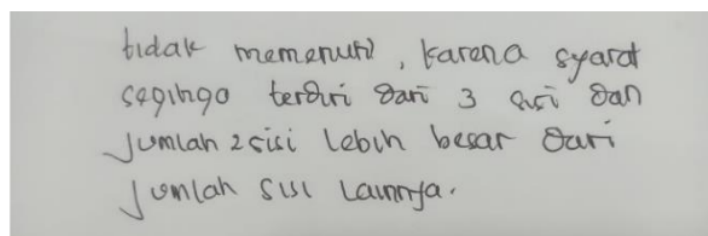 tidak memenuhi, karena syarat
segitiga terdiri dari 3 sisi dan
Jumlah 2 sisi lebih besar dari
Jumlah sisi lainnya.